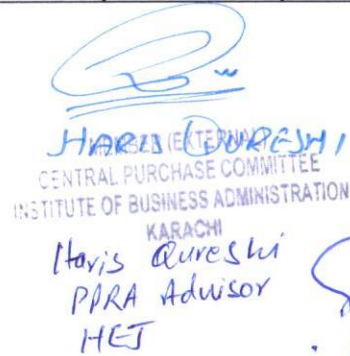 HARIS QURESHI
MEMBER (EXTERNAL)
CENTRAL PURCHASE COMMITTEE
INSTITUTE OF BUSINESS ADMINISTRATION
KARACHI
Haris Qureshi
PPRA Advisor
HEJ